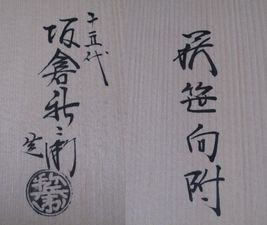 萩笹向附
十五代
坂倉新兵衛
造